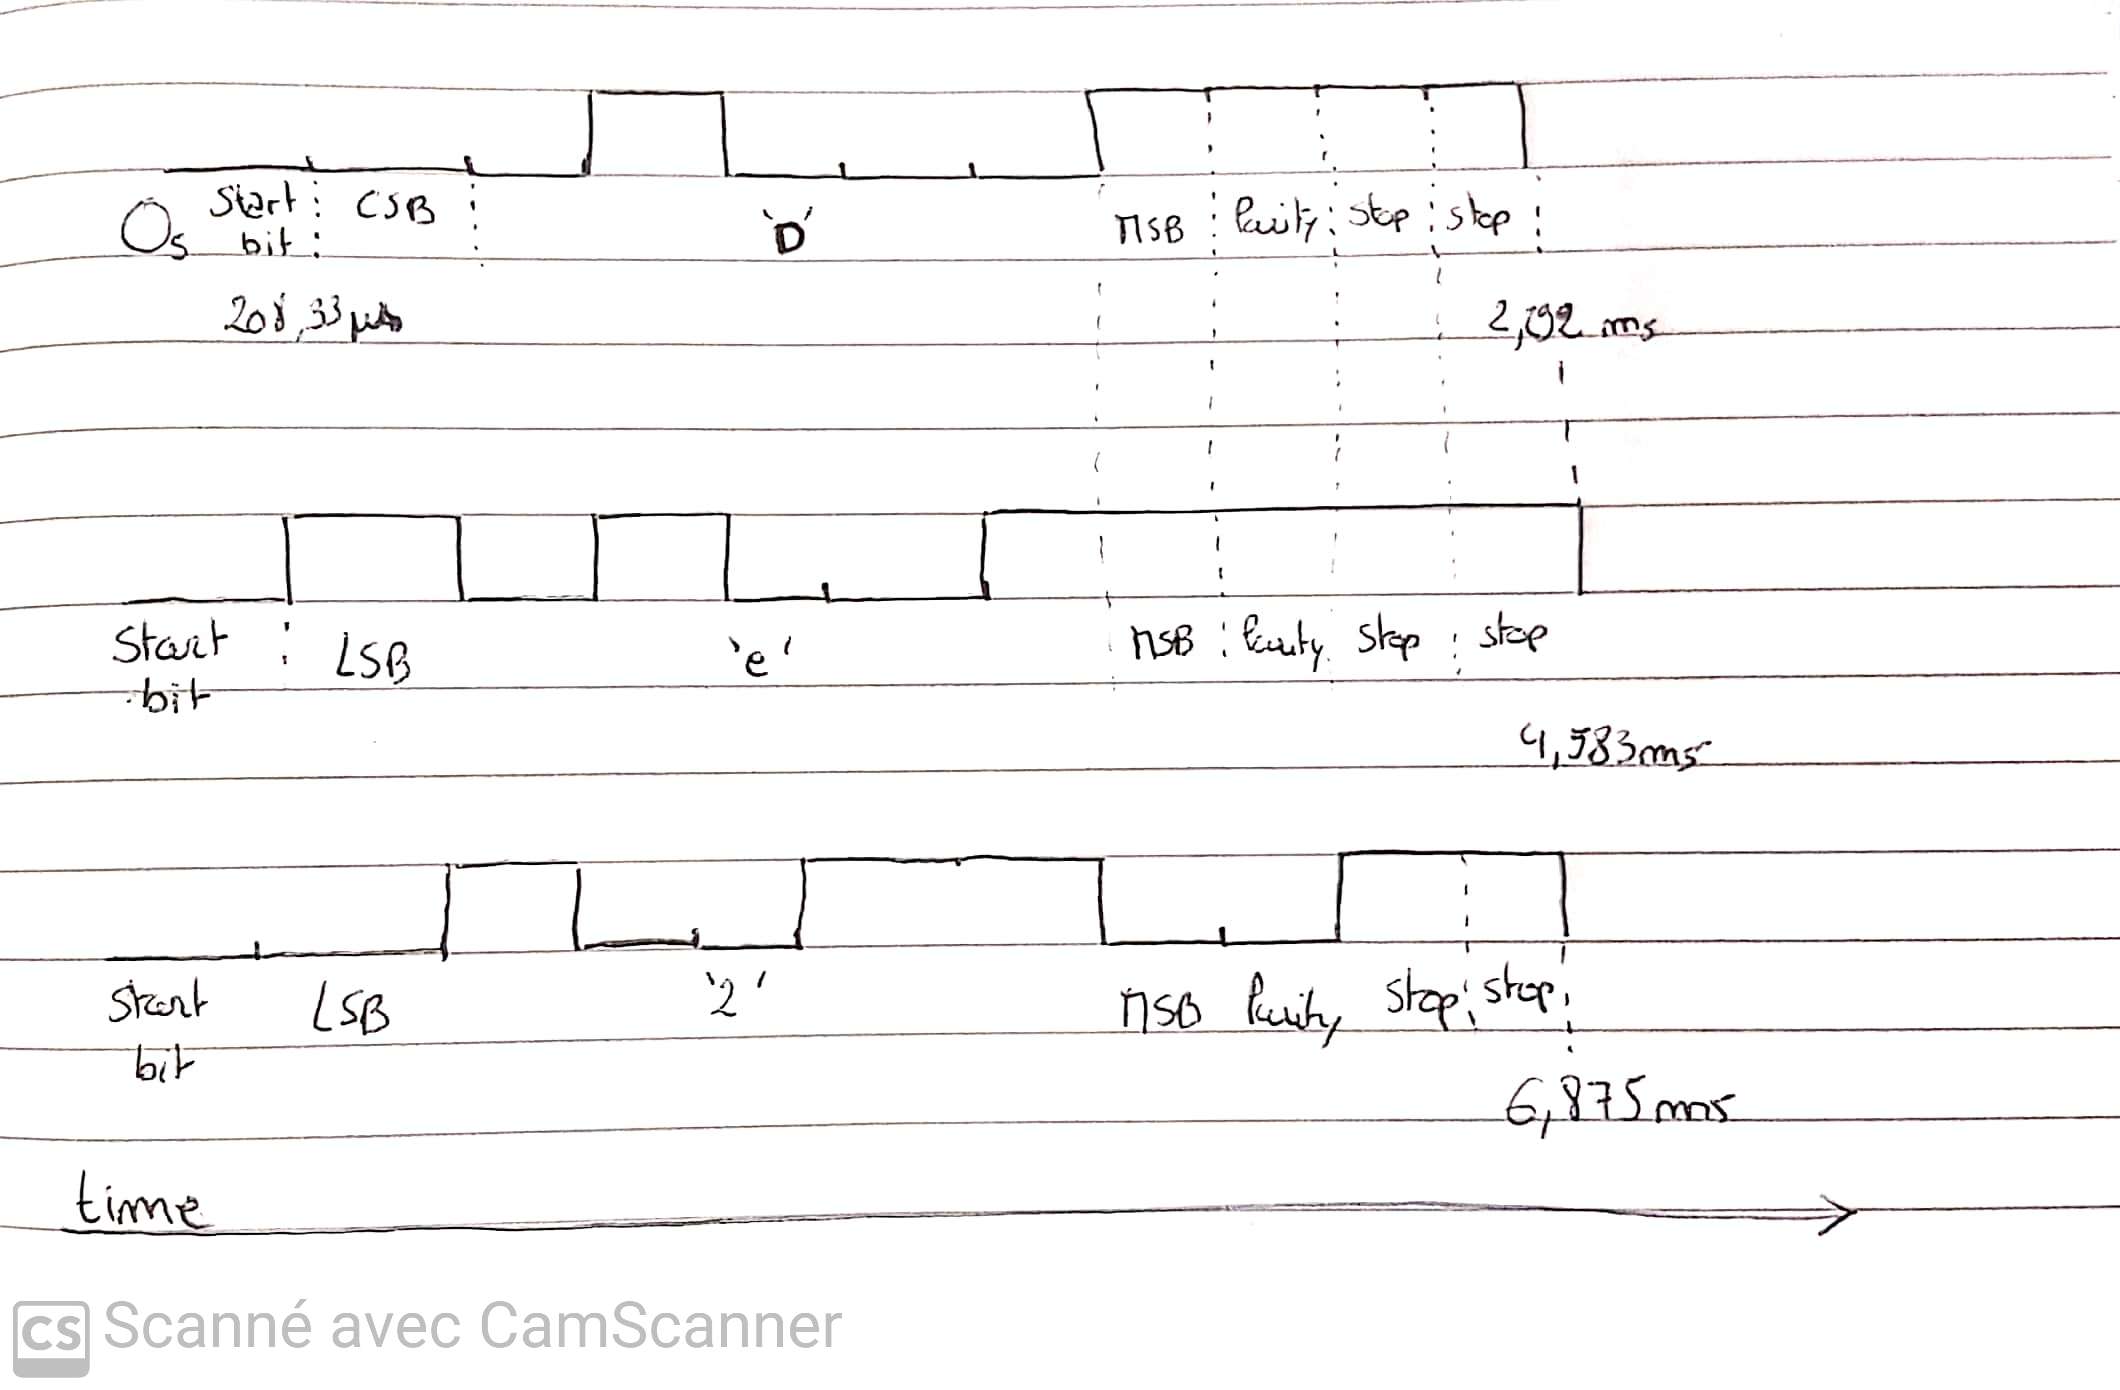 Start CSB
Os bit 'D' MSB Parity stop stop
208,33 µs 2,292 ms
Start LSB 'e' MSB Parity Stop stop
bit
4,583ms
Start LSB '2' MSB Parity Stop stop
bit
6,875ms
time
CS Scanné avec CamScanner